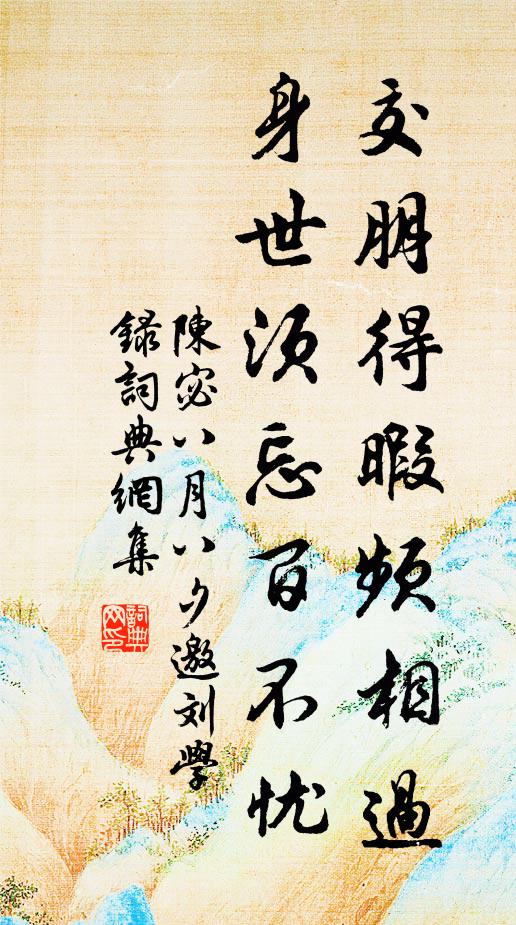 交朋得暇頻相過
身世須忘百不忧
陳宓八月八夕邀刘學
録詞典網集
詞典網印